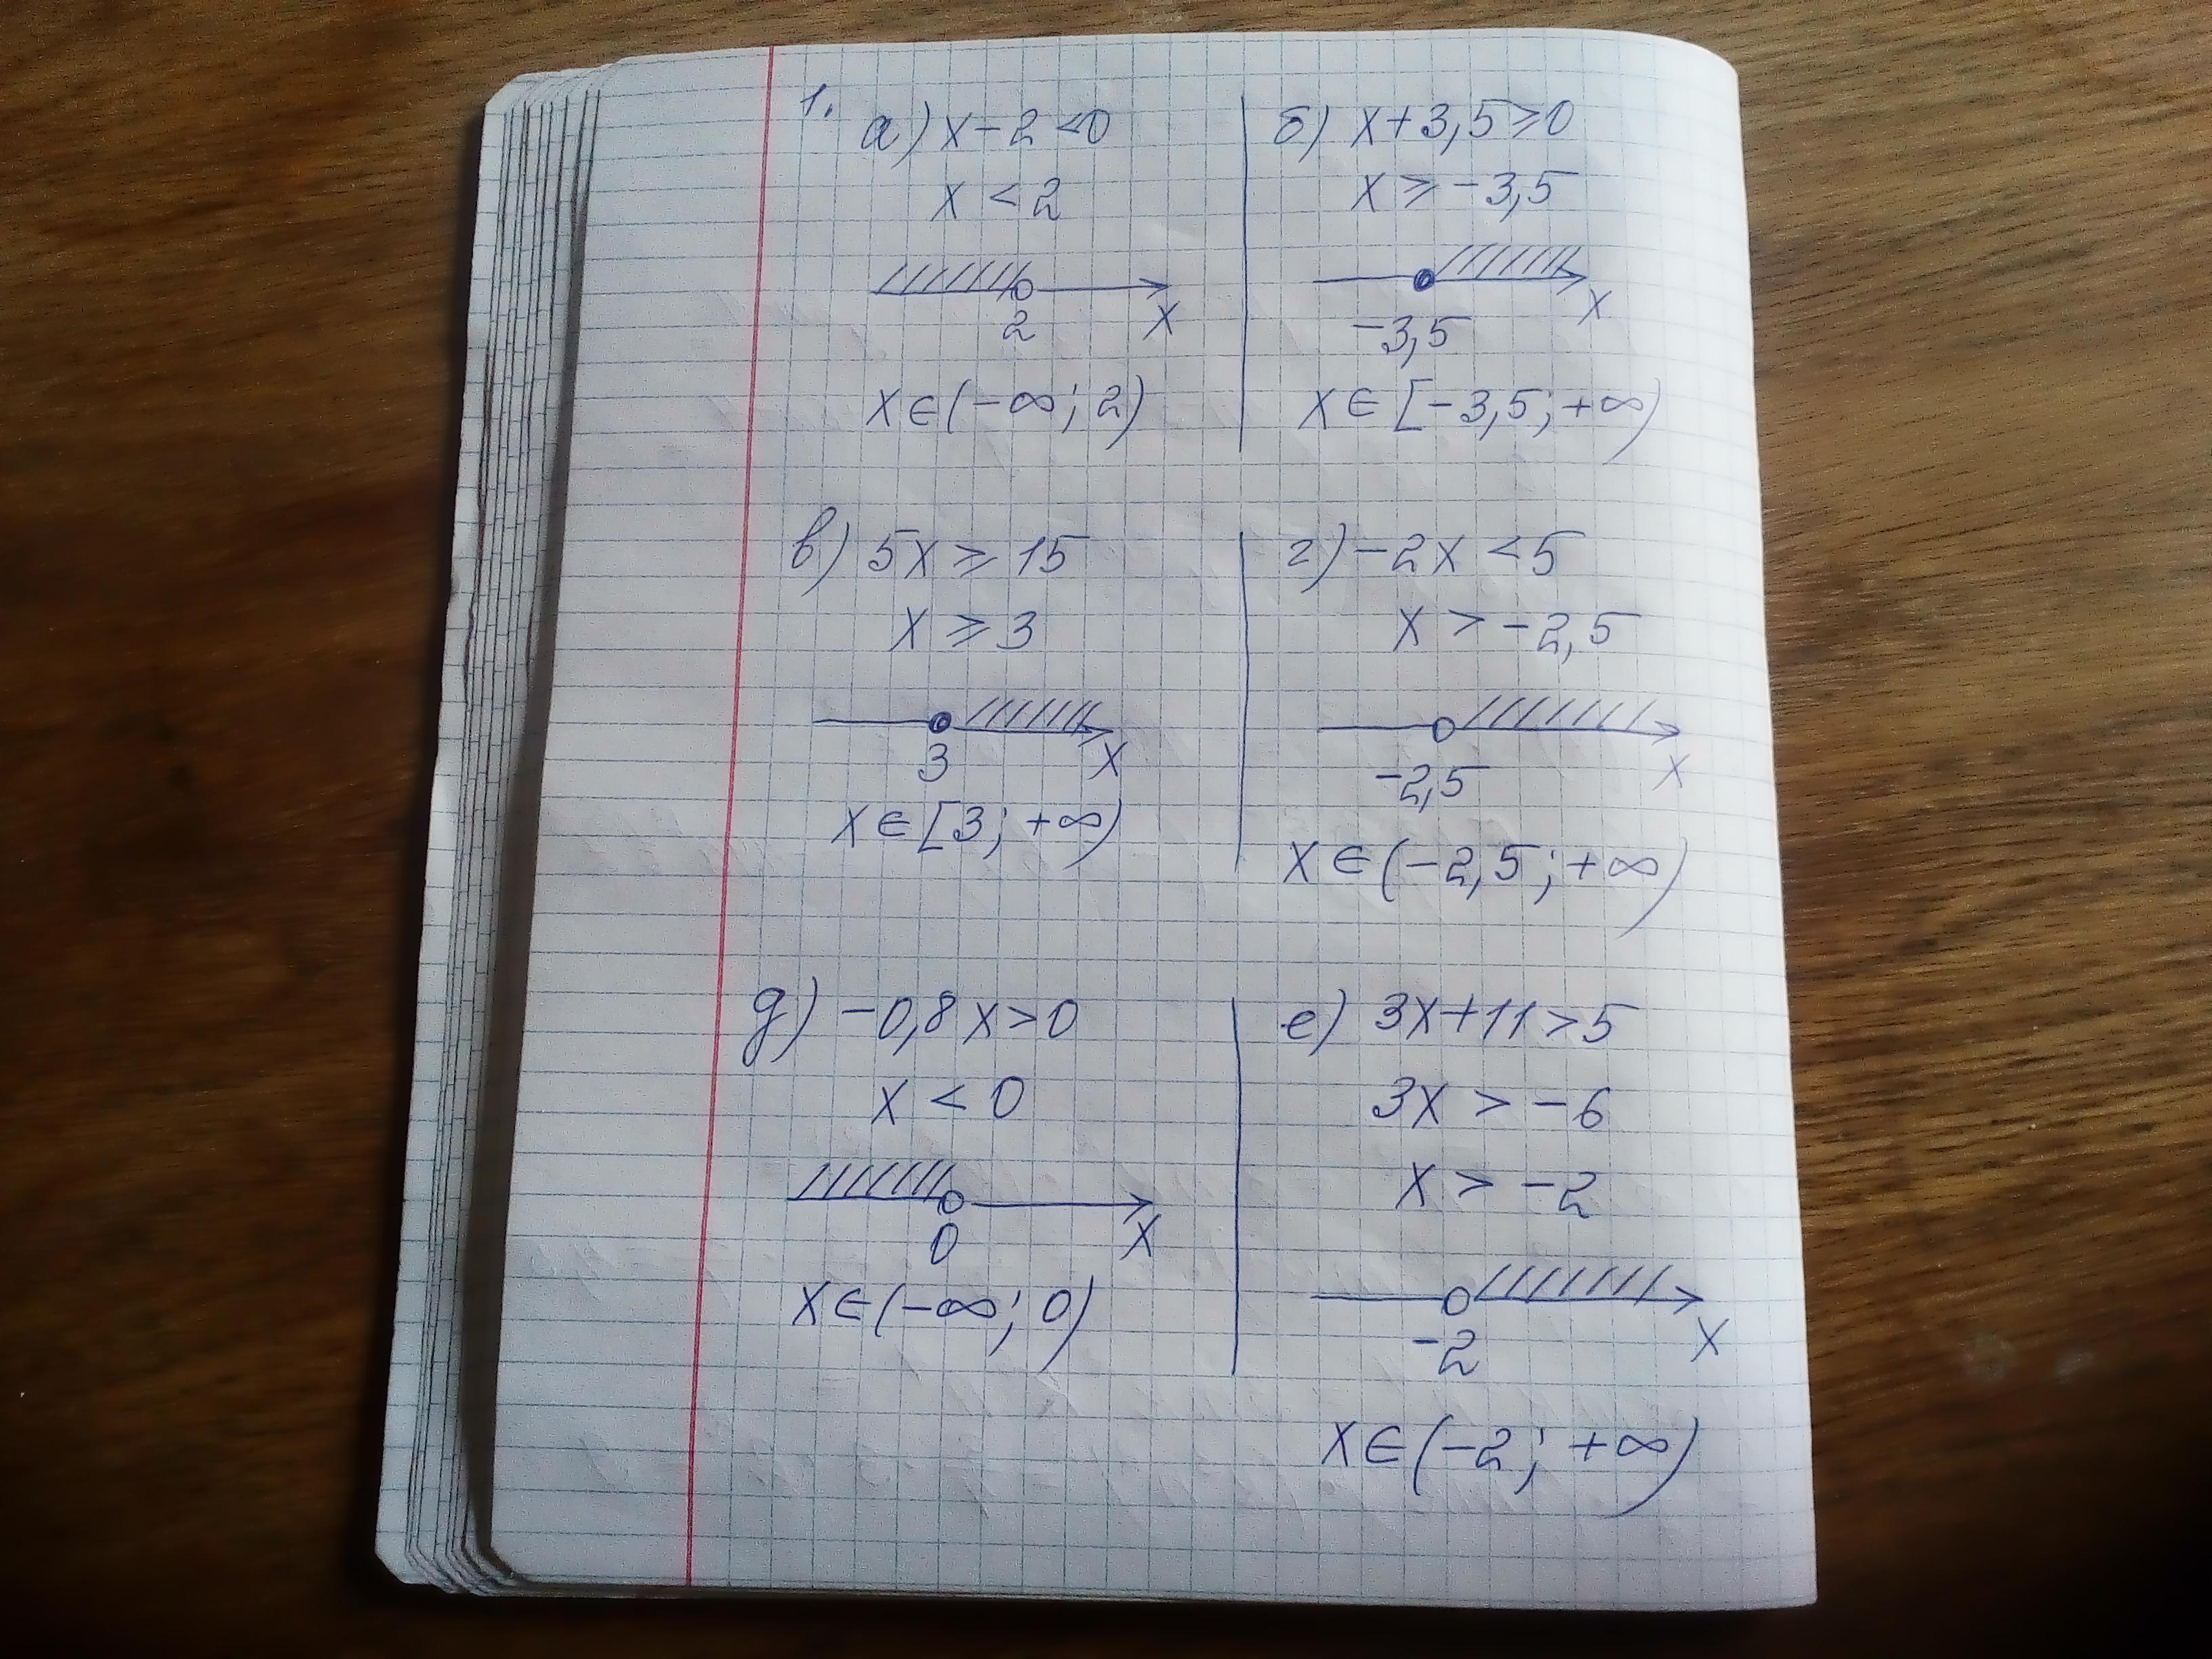 1.
а) x-2<0
x<2
2 x
x∈(-∞; 2)
б) x+3,5⩾0
x⩾-3,5
-3,5 x
x∈[-3,5; +∞)
в) 5x⩾15
x⩾3
3 x
x∈[3; +∞)
г) -2x<5
x>-2,5
-2,5 x
x∈(-2,5; +∞)
д) -0,8x>0
x<0
0 x
x∈(-∞; 0)
е) 3x+11>5
3x>-6
x>-2
-2 x
x∈(-2; +∞)